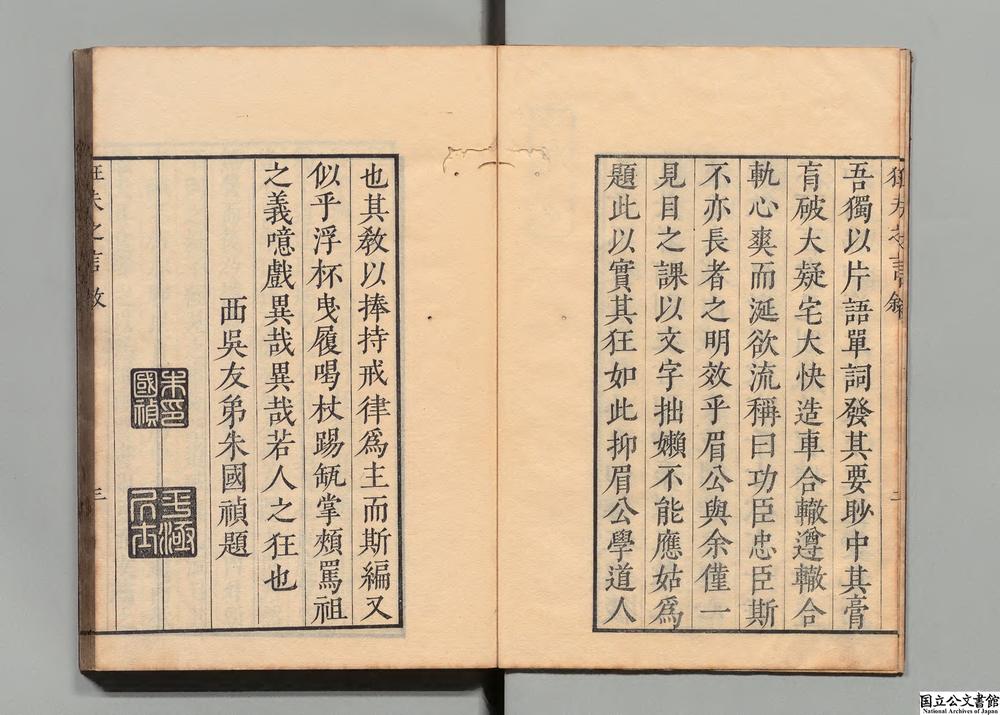 狂夫之言敘
吾獨以片語單詞發其要眇中其膏
肓破大疑宅大快造車合轍遵轍合
軌心爽而涎欲流稱曰功臣忠臣斯
不亦長者之明效乎眉公與余僅一
見目之課以文字拙嬾不能應姑爲
題此以實其狂如此抑眉公學道人
也其敎以捧持戒律爲主而斯編又
似乎浮杯曳履喝杖踢缻掌頰罵祖
之義噫戲異哉異哉若人之狂也
西吳友弟朱國禎題
朱印國禎
狂夫之言敘
三
国立公文書館
National Archives of Japan